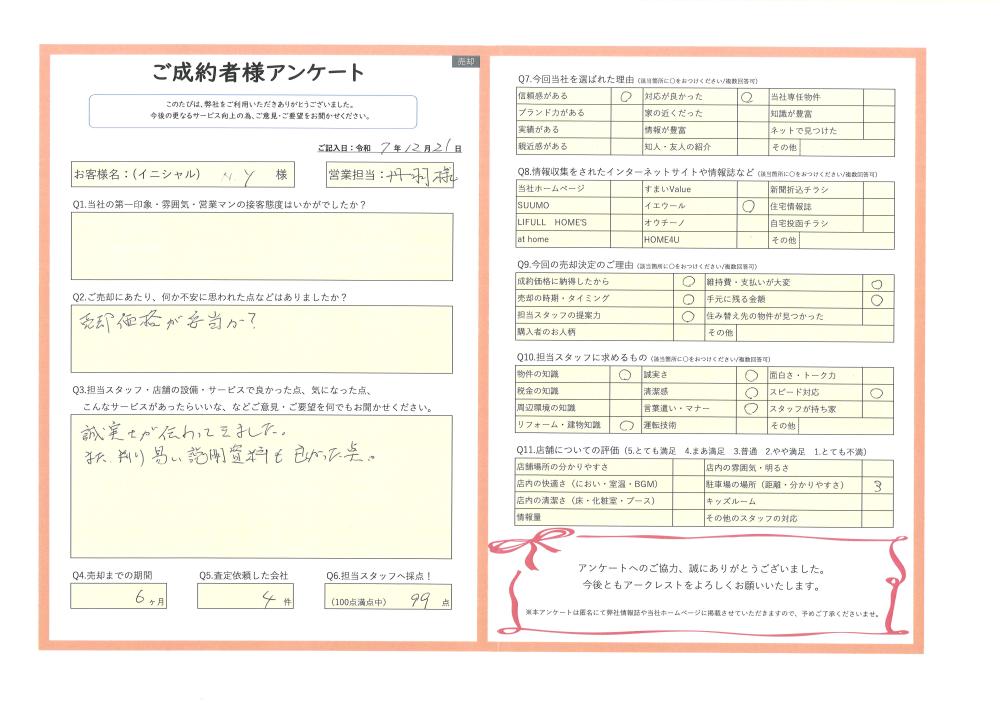 売却
ご成約者様アンケート
このたびは、弊社をご利用いただきありがとうございました。
今後の更なるサービス向上の為、ご意見・ご要望をお聞かせください。
ご記入日：令和 7 年 12 月 21 日
お客様名：(イニシャル) N.Y 様
営業担当：丹羽様
Q1.当社の第一印象・雰囲気・営業マンの接客態度はいかがでしたか？
Q2.ご売却にあたり、何か不安に思われた点などはありましたか？
売却価格が妥当か？
Q3.担当スタッフ・店舗の設備・サービスで良かった点、気になった点、
こんなサービスがあったらいいな、などご意見・ご要望を何でもお聞かせください。
誠実さが伝わってきました。
また、判り易い説明資料も良かった点。
Q4.売却までの期間
6 ヶ月
Q5.査定依頼した会社
4 件
Q6.担当スタッフへ採点！
(100点満点中) 99 点
Q7.今回当社を選ばれた理由（該当箇所に○をおつけください/複数回答可）
信頼感がある ○ 対応が良かった ○ 当社専任物件
ブランド力がある 家の近くだった 知識が豊富
実績がある 情報が豊富 ネットで見つけた
親近感がある 知人・友人の紹介 その他
Q8.情報収集をされたインターネットサイトや情報誌など（該当箇所に○をおつけください/複数回答可）
当社ホームページ すまいValue 新聞折込チラシ
SUUMO イエウール ○ 住宅情報誌
LIFULL HOME'S オウチーノ 自宅投函チラシ
at home HOME4U その他
Q9.今回の売却決定のご理由（該当箇所に○をおつけください/複数回答可）
成約価格に納得したから ○ 維持費・支払いが大変 ○
売却の時期・タイミング ○ 手元に残る金額 ○
担当スタッフの提案力 ○ 住み替え先の物件が見つかった
購入者のお人柄 その他
Q10.担当スタッフに求めるもの（該当箇所に○をおつけください/複数回答可）
物件の知識 ○ 誠実さ ○ 面白さ・トーク力
税金の知識 清潔感 ○ スピード対応 ○
周辺環境の知識 言葉遣い・マナー ○ スタッフが持ち家
リフォーム・建物知識 ○ 運転技術 その他
Q11.店舗についての評価（5.とても満足 4.まあ満足 3.普通 2.やや満足 1.とても不満）
店舗場所の分かりやすさ 店内の雰囲気・明るさ
店内の快適さ（におい・室温・BGM） 駐車場の場所（距離・分かりやすさ） 3
店内の清潔さ（床・化粧室・ブース） キッズルーム
情報量 その他のスタッフの対応
アンケートへのご協力、誠にありがとうございました。
今後ともアークレストをよろしくお願いいたします。
※本アンケートは匿名にて弊社情報誌や当社ホームページに掲載させていただきますので、予めご了承くださいませ。